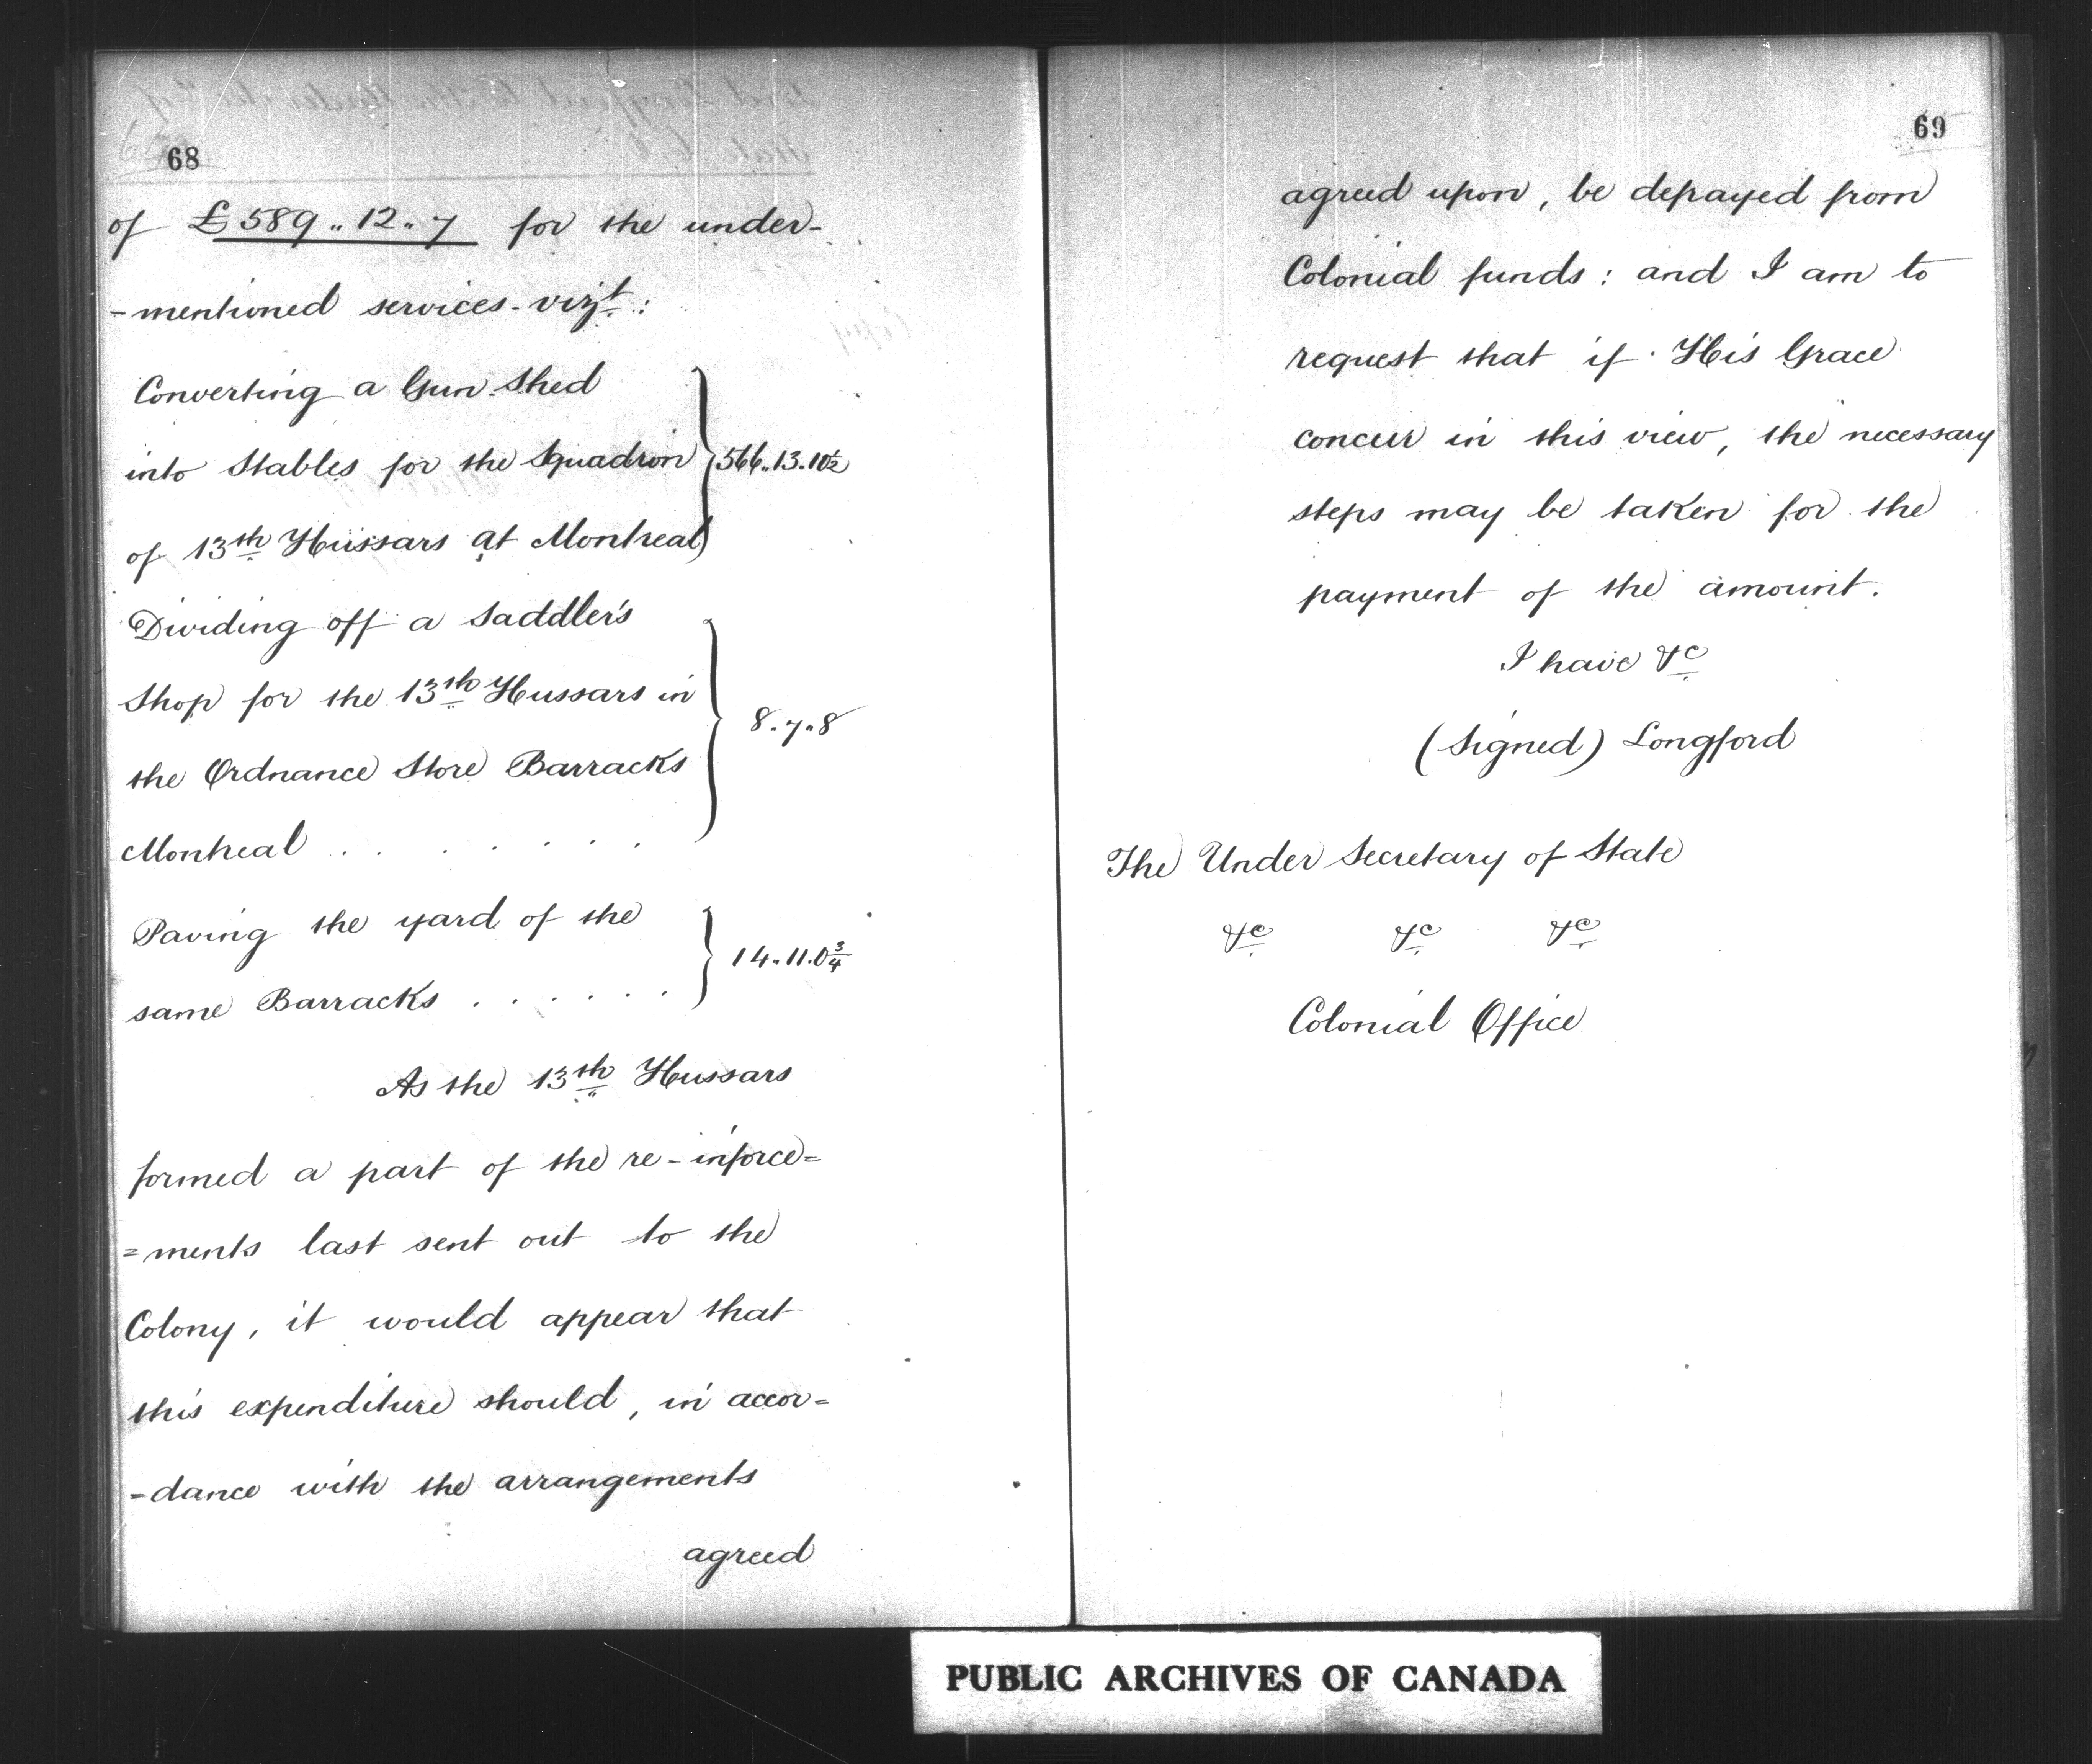 68
of £589..12..7 for the under-
-mentioned services - vizt:
Converting a Gun Shed
into Stables for the Squadron 566..13.10½
of 13th Hussars at Montreal
Dividing off a Saddler's
Shop for the 13th Hussars in
the Ordnance Store Barracks 8..7..8
Montreal . . . . . . .
Paving the yard of the
same Barracks . . . . . . 14..11.0¾
As the 13th Hussars
formed a part of the re-inforce=
=ments last sent out to the
Colony, it would appear that
this expenditure should, in accor=
-dance with the arrangements
agreed
69
agreed upon, be defrayed from
Colonial funds: and I am to
request that if His Grace
concur in this view, the necessary
steps may be taken for the
payment of the amount.
I have &c
(Signed) Longford
The Under Secretary of State
&c &c &c
Colonial Office
PUBLIC ARCHIVES OF CANADA